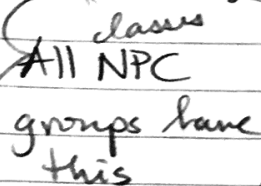 classes
All NPC
groups have
this